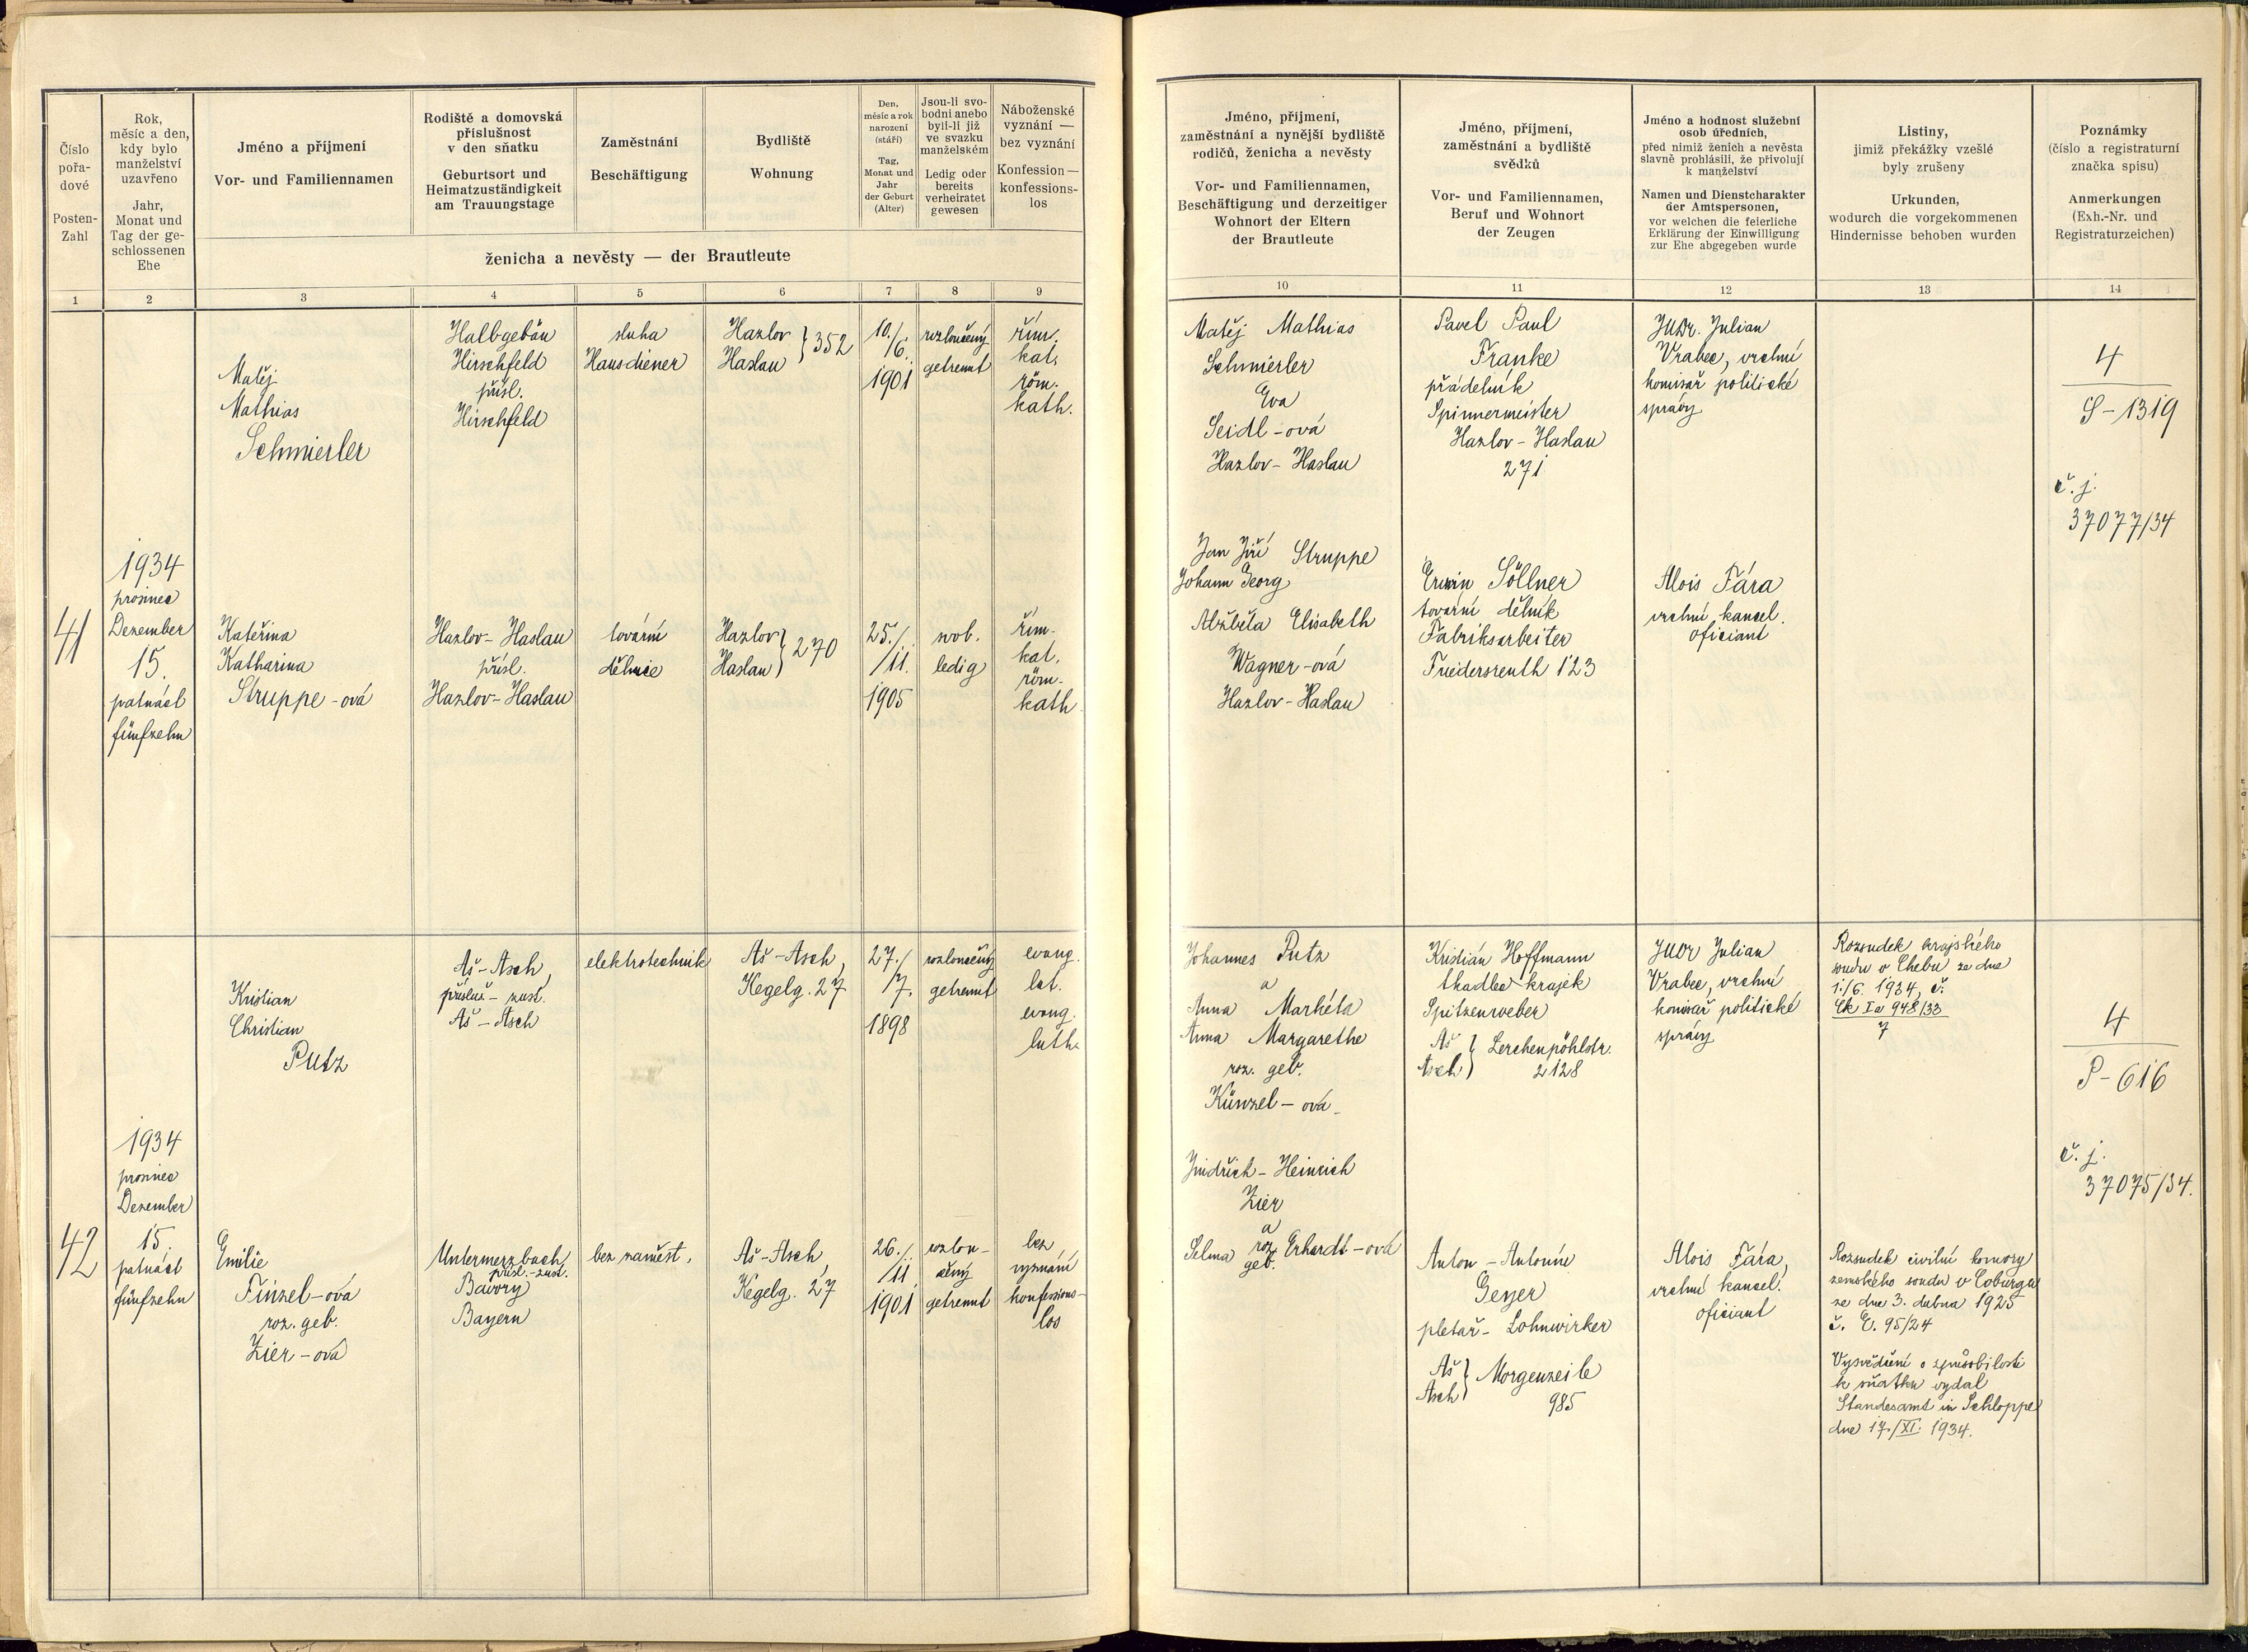 Číslo
pořa-
dové
Posten-
Zahl
Rok,
měsíc a den,
kdy bylo
manželství
uzavřeno
Jahr,
Monat und
Tag der ge-
schlossenen
Ehe
Jméno a příjmení
Vor- und Familiennamen
Rodiště a domovská
příslušnost
v den sňatku
Geburtsort und
Heimatzuständigkeit
am Trauungstage
Zaměstnání
Beschäftigung
Bydliště
Wohnung
Den,
měsíc a rok
narození
(stáří)
Tag,
Monat und
Jahr
der Geburt
(Alter)
Jsou-li svo-
bodni anebo
byli-li již
ve svazku
manželském
Ledig oder
bereits
verheiratet
gewesen
Náboženské
vyznání —
bez vyznání
Konfession —
konfessions-
los
ženicha a nevěsty — der Brautleute
1
2
3
4
5
6
7
8
9
41
1934
prosinec
Dezember
15.
patnáct
fünfzehn
Matěj
Mathias
Schmierler
Halbgebäu
Hirschfeld
přísl.
Hirschfeld
sluha
Hausdiener
Hazlov
Haslau } 352
10./
/6.
1901
rozloučený
getrennt
řím.
kat.
röm.
kath.
Kateřina
Katharina
Struppe-ová
Hazlov-Haslau
přísl.
Hazlov-Haslau
tovární
dělnice
Hazlov
Haslau } 270
25./
/11.
1905
svob.
ledig
řím.
kat.
röm.
kath.
42
1934
prosinec
Dezember
15.
patnáct
fünfzehn
Kristian
Christian
Putz
Aš-Asch,
příslš-zust.
Aš-Asch
elektrotechnik
Aš-Asch,
Kegelg. 27
27./
/7.
1898
rozloučený
getrennt
evang.
lut.
evang.
luth.
Emilie
Finzel-ová
roz. geb.
Zier-ová
Untermerzbach,
přísl.-zust.
Bavory
Bayern
bez zaměst.
Aš-Asch,
Kegelg. 27
26./
/11.
1901
rozlou-
čený
getrennt
bez
vyznání
konfessions-
los
Jméno, příjmení,
zaměstnání a nynější bydliště
rodičů, ženicha a nevěsty
Vor- und Familiennamen,
Beschäftigung und derzeitiger
Wohnort der Eltern
der Brautleute
Jméno, příjmení,
zaměstnání a bydliště
svědků
Vor- und Familiennamen,
Beruf und Wohnort
der Zeugen
Jméno a hodnost služební
osob úředních,
před nimiž ženich a nevěsta
slavně prohlásili, že přivolují
k manželství
Namen und Dienstcharakter
der Amtspersonen,
vor welchen die feierliche
Erklärung der Einwilligung
zur Ehe abgegeben wurde
Listiny,
jimiž překážky vzešlé
byly zrušeny
Urkunden,
wodurch die vorgekommenen
Hindernisse behoben wurden
Poznámky
(číslo a registraturní
značka spisu)
Anmerkungen
(Exh.-Nr. und
Registraturzeichen)
10
11
12
13
14
Matěj Mathias
Schmierler
Eva
Seidl-ová
Hazlov-Haslau
Pavel Paul
Franke
přádelník
Spinnermeister
Hazlov-Haslau
271
JUDr. Julian
Vrabec, vrchní
komisař politické
správy
4
S-1319
č. j.
37077/34
Jan Jiří Struppe
Johann Georg
Alžběta Elisabeth
Wagner-ová
Hazlov-Haslau
Erwin Söllner
tovární dělník
Fabriksarbeiter
Friedersreuth 123
Alois Fára
vrchní kancel.
oficiant
Johannes Putz
a
Anna Markéta
Anna Margarethe
roz. geb.
Künzel-ová
Kristián Hoffmann
tkadlec krajek
Spitzenweber
Aš
Asch } Lerchenpöhlstr.
2128
JUDr Julian
Vrabec, vrchní
komisař politické
správy
Rozsudek krajského
soudu v Chebu ze dne
1./6. 1934, č.
Ck Ia 948/33
7
4
P-616
č. j.
37075/34.
Jindřich-Heinrich
Zier
a
Selma roz. Erhardt-ová
geb.
Anton-Antonín
Geyer
pletař-Lohnwirker
Aš
Asch } Morgenzeile
985
Alois Fára,
vrchní kancel.
oficiant
Rozsudek civilní komory
zemského soudu v Coburgu
ze dne 3. dubna 1925
č. E. 95/24
Vysvědčení o způsobilosti
k sňatku vydal
Standesamt in Schloppe
dne 17./XI. 1934.